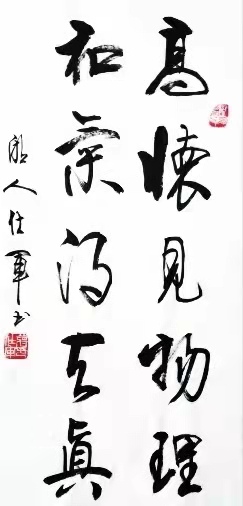 高懷見物理
和氣得天真
人仕軍书